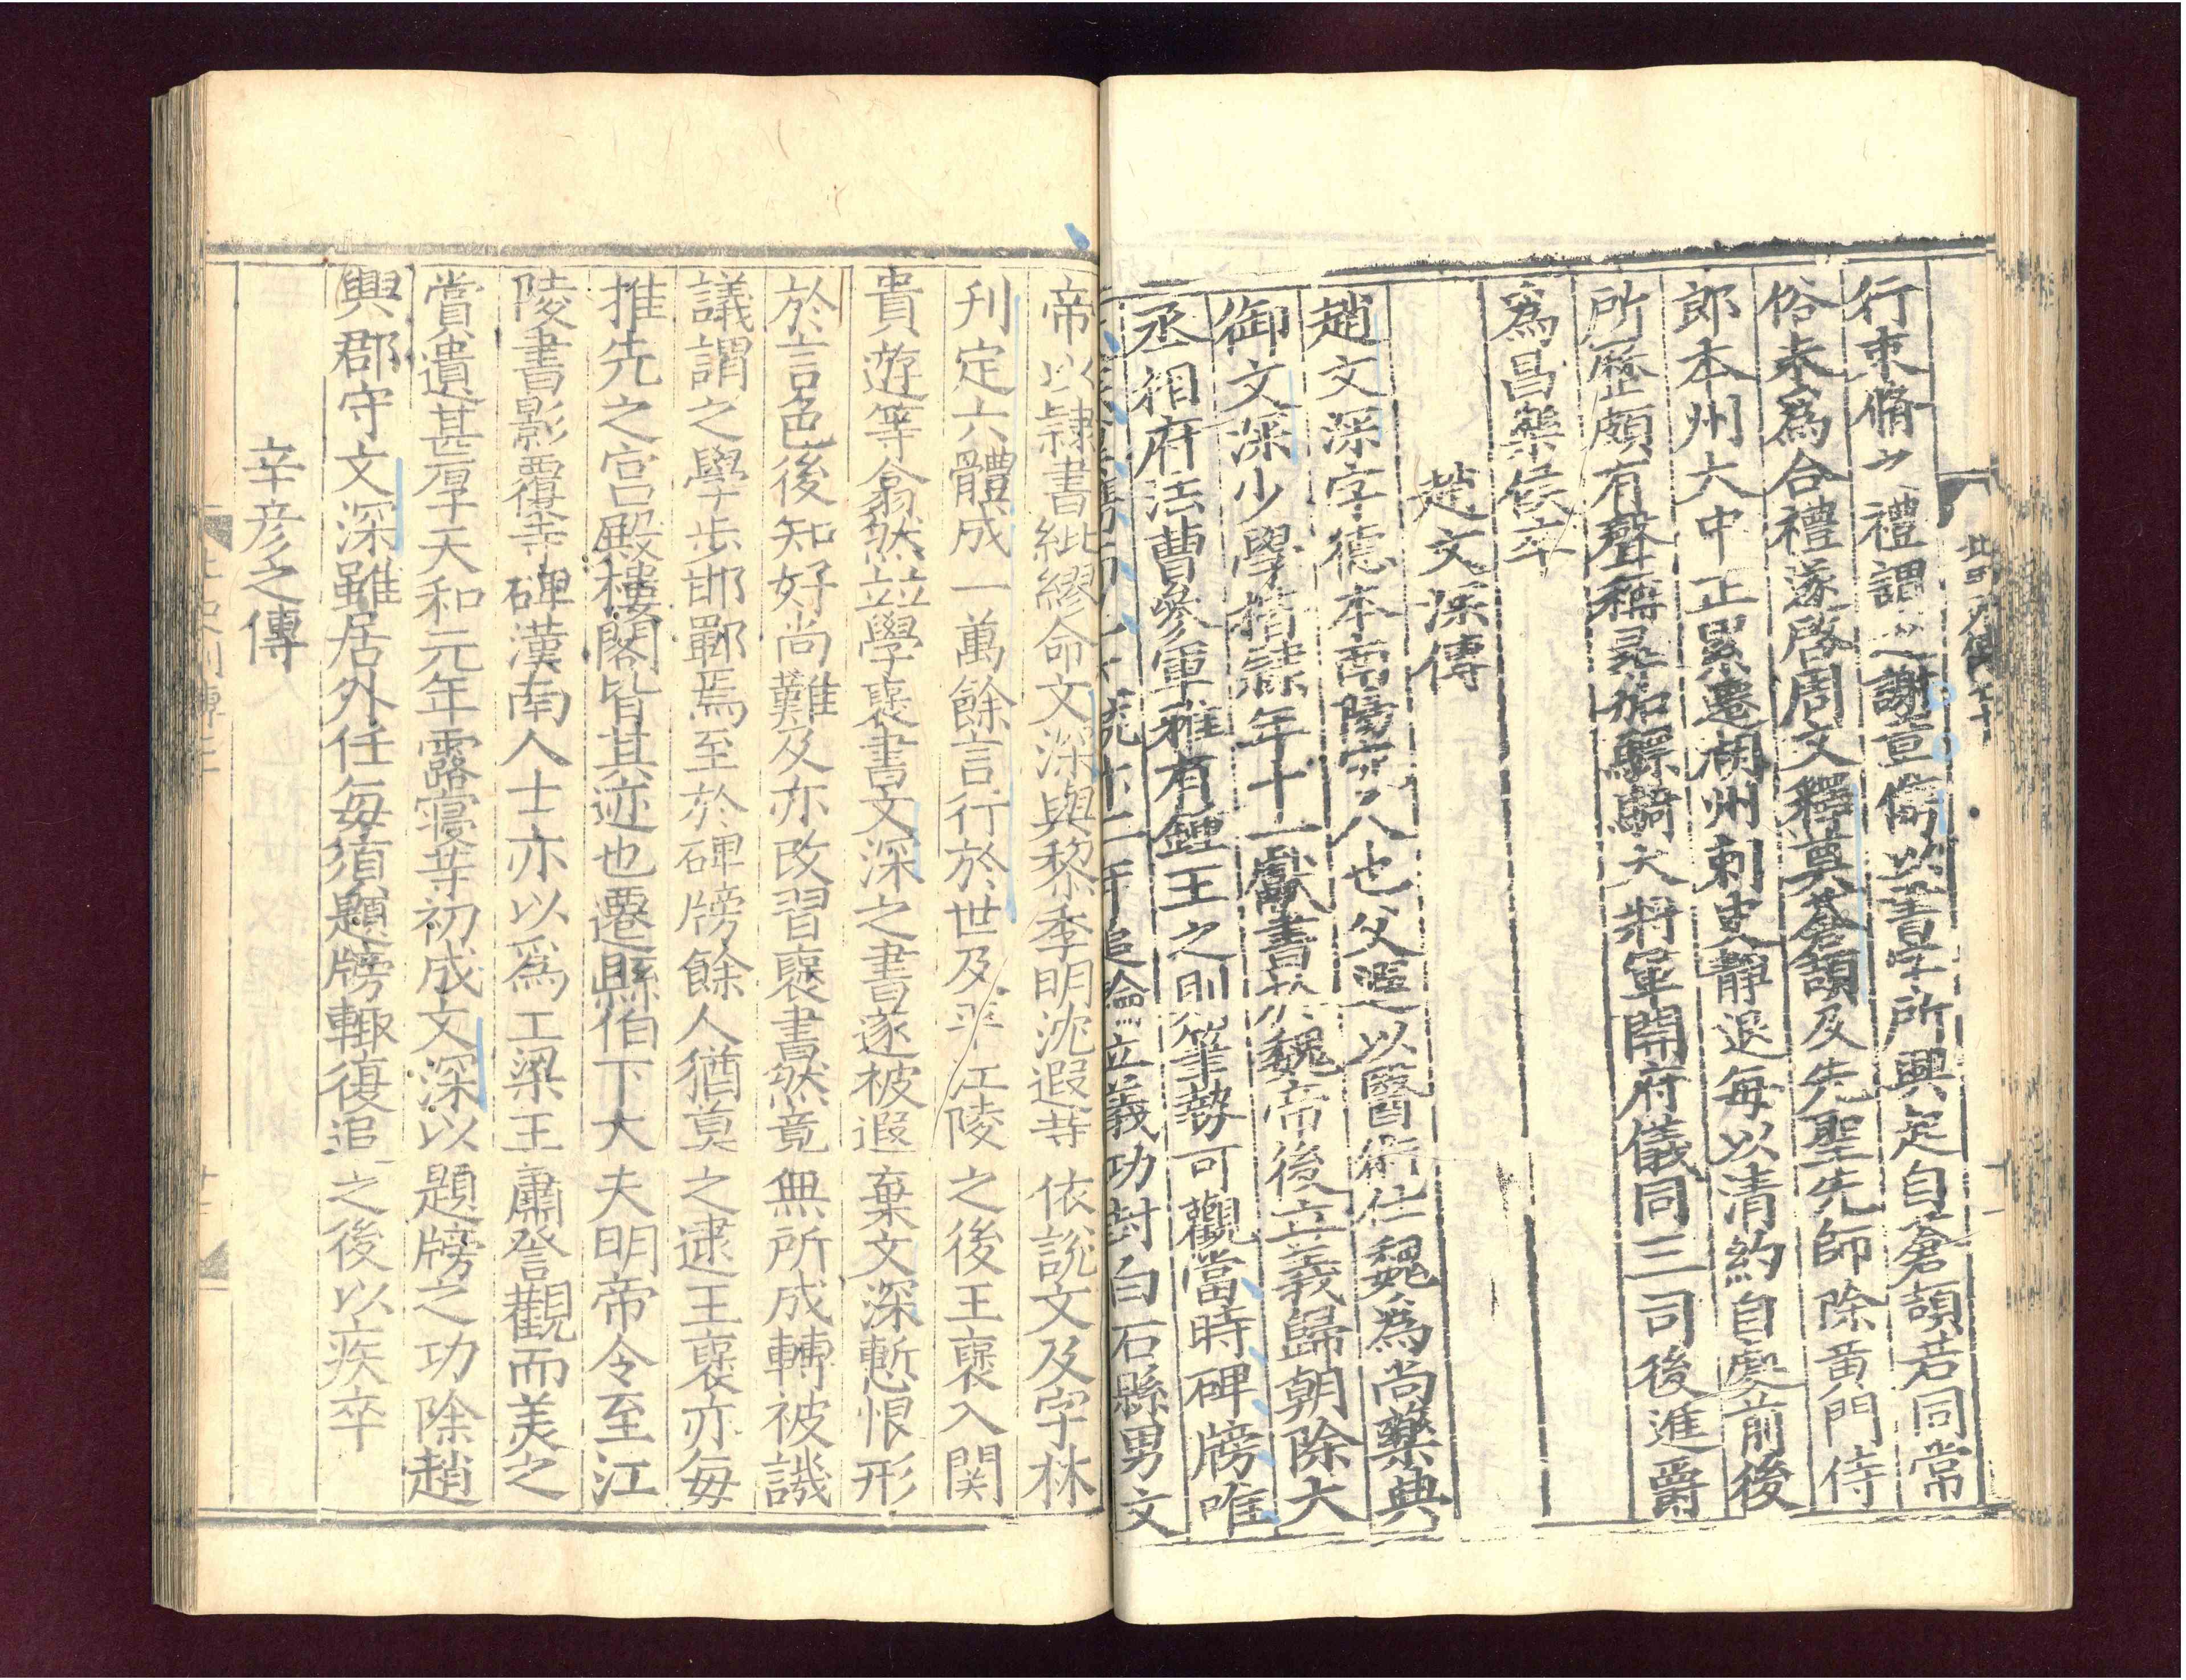 行束脩之禮謂之謝章儁以書字所興起自蒼頡若同常
俗未爲合禮遂啓周文釋奠蒼頡及先聖先師除黃門侍
郎本州大中正累遷湖州刺史靜退每以清約自處前後
所歷頗有聲稱尋加驃騎大將軍開府儀同三司後進爵
爲昌樂侯卒
趙文深傳
趙文深字德本南陽宛人也父遐以醫術仕魏爲尚藥典
御文深少學楷隸年十一獻書於魏帝後立義歸朝除大
丞相府法曹參軍雅有鍾王之則筆勢可觀當時碑牓唯
文深冀儁而已大統十二年追論立義功封白石縣男文
帝以隷書紕繆命文深與黎季明沈遐等依說文及字林
刋定六體成一萬餘言行於世及平江陵之後王褒入関
貴遊等翕然並學褒書文深之書遂被遐棄文深慙恨形
於言色後知好尚難及亦改習褒書然竟無所成轉被譏
議謂之學步邯鄲焉至於碑牓餘人猶莫之逮王褒亦每
推先之宮殿樓閣皆其迹也遷縣伯下大夫明帝令至江
陵書影覆寺碑漢南人士亦以爲工梁王蕭詧觀而美之
賞遺甚厚天和元年露寢等初成文深以題牓之功除趙
興郡守文深雖居外任每須題牓輙復追之後以疾卒
辛彦之傳